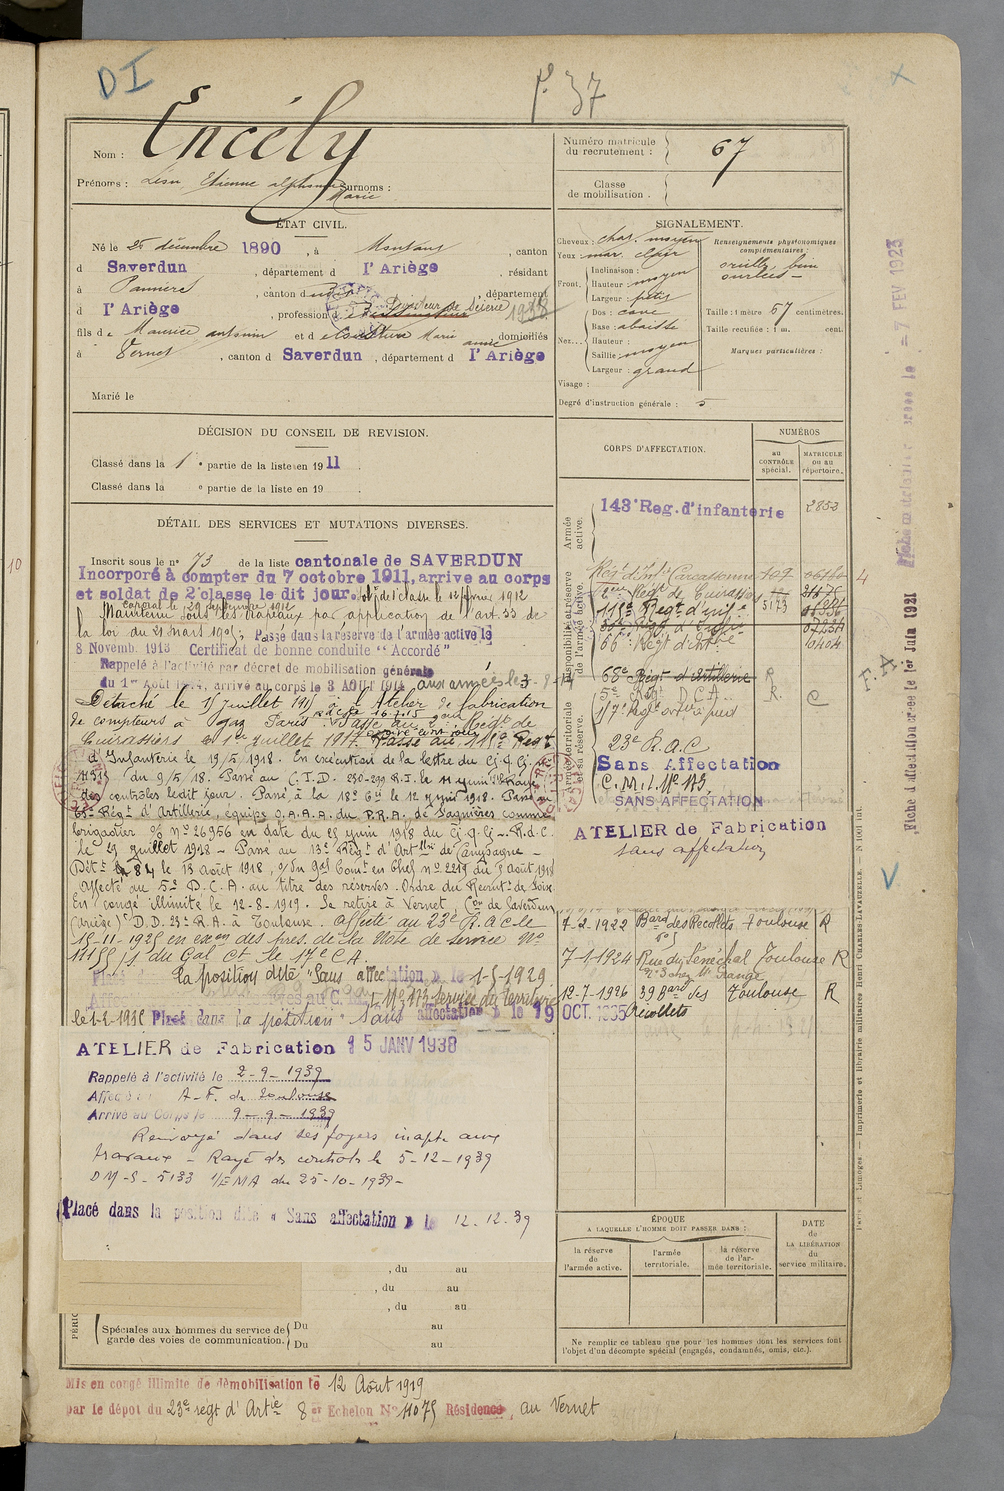 DI
f. 37
Nom : Encély
Prénoms : Léon Etienne alphonse Marie Surnoms :
Numéro matricule du recrutement : 67
Classe de mobilisation :
ÉTAT CIVIL.
Né le 25 décembre 1890, à , canton
d Saverdun, département d l'Ariège, résidant
à Pamiers, canton d , département
d l'Ariège, profession d 1938
fils de Maurice antonin et d Marie domiciliés
à Vernet, canton d Saverdun, département d l'Ariège
Marié le
SIGNALEMENT.
Cheveux : chat. moyen
Yeux mar. clair
Front, Inclinaison :
Hauteur : moyen
Largeur : petit
Nez... Dos : cave
Base : abaissé
Hauteur :
Saillie : moyen
Largeur : grand
Visage :
Renseignements physionomiques complémentaires :
oreilles bien ourlées
Taille : 1 mètre 67 centimètres.
Taille rectifiée : 1 m. cent.
Marques particulières :
Degré d'instruction générale : 5
DÉCISION DU CONSEIL DE REVISION.
Classé dans la 1e partie de la liste en 1911.
Classé dans la e partie de la liste en 19 .
DÉTAIL DES SERVICES ET MUTATIONS DIVERSES.
Inscrit sous le n° 73 de la liste cantonale de SAVERDUN
Incorporé à compter du 7 octobre 1911, arrive au corps
et soldat de 2e classe le dit jour. Sol. de 1e classe le 12 février 1912
Caporal le 29 septembre 1912
Maintenu sous les drapeaux par application de l'art. 33 de
la loi du 21 mars 1905; Passé dans la réserve de l'armée active le
8 Novemb. 1913 Certificat de bonne conduite "Accordé"
Rappelé à l'activité par décret de mobilisation générale
du 1er Août 1914, arrivé au corps le 3 AOUT 1914 aux armées le 3-8-14
Détaché le 15 juillet 1915 à l'Atelier de fabrication
de compteurs à gaz Paris. Passé au 2eme Régt de
Cuirassiers le 1er juillet 1917. Passé au 111e Regt
d'Infanterie le 19/5/1918. En exécution de la lettre du G.Q.G.
du 9/5/18. Passé au C.I.D. 250-290 R.I. le 11 juin 1918 Rayé
des controles ledit jour. Passé à la 18e Cie le 12 juin 1918. Passé au
Régt d'Artillerie, équipe O.A.A.A. du P.R.A. de Sagnières comme
brigadier n° 26956 en date du 25 juin 1918 du G.Q.G. R.d.C.
le 29 juillet 1918 - Passé au 13e Régt d'Artrie de Campagne -
le 13 août 1918, Gal Comt en Chef n° 2219 du 5 Août 1918
Affecté au 5e D.C.A. au titre des réserves. Ordre du Recrutt de Foix.
En congé illimité le 12-8-1919. Se retire à Vernet, Con de Saverdun
(Ariège) D.D. 23e R.A. à Toulouse. affecté au 23e R.A.C. le
15-11-1925 en exon des pres. de la Note de Service N°
du Gal Ct le 17e C.A.
La position dite "Sans affectation" le 1-5-1929
service du Territoire
Placé dans la position "sans affectation" le 19 OCT. 1935
ATELIER de Fabrication 15 JANV 1938
Rappelé à l'activité le 2-9-1939
Affecté à A-F. de Toulouse
Arrivé au Corps le 9-9-1939
Renvoyé dans ses foyers inapte aux
travaux - Rayé des controls le 5-12-1939
DM-S- 5133 1/EMA du 25-10-1939-
Placé dans la position dite "Sans affectation" le 12.12.39
CORPS D'AFFECTATION.
NUMÉROS
au CONTRÔLE spécial.
MATRICULE ou au répertoire.
Armée active.
143e Reg. d'infanterie 2853
Disponibilité et réserve de l'armée active.
Régt d'Inf. Carcassonne 109
2eme Régt de Cuirassiers
111e Regt d'infie 5173
66e Régt d'Inf. 0404
68e Régt d'Artillerie R
5e Régt D.C.A. R.
117e Régt
Armée territoriale et sa réserve.
23e R.A.C
Sans Affectation
C.M.I. N° 173,
SANS AFFECTATION
ATELIER de Fabrication
sans affectation
7-2-1922 Bard des Recollets Toulouse R
7-1-1924 Rue du Sénéchal Toulouse R
n° 3 chez Mr Grange
12-7-1926 39 Bard des Recollets Toulouse R
ÉPOQUE
A LAQUELLE L'HOMME DOIT PASSER DANS :
la réserve de l'armée active.
l'armée territoriale.
la réserve de l'armée territoriale.
DATE de LA LIBÉRATION du service militaire.
, du au
, du au
, du au
Spéciales aux hommes du service de garde des voies de communication.
Du au
Du au
Ne remplir ce tableau que pour les hommes dont les services font l'objet d'un décompte spécial (engagés, condamnés, omis, etc.).
Mis en congé illimité de démobilisation le 12 Août 1919
par le dépot du 23e régt d'Artie 8e Echelon N° 11075 Résidence, au Vernet
= 7 FEV 1923
Fiche d'affectation créée le 1er Juin 1921
F. A
Paris et Limoges. — Imprimerie et librairie militaires Henri CHARLES-LAVAUZELLE.
10